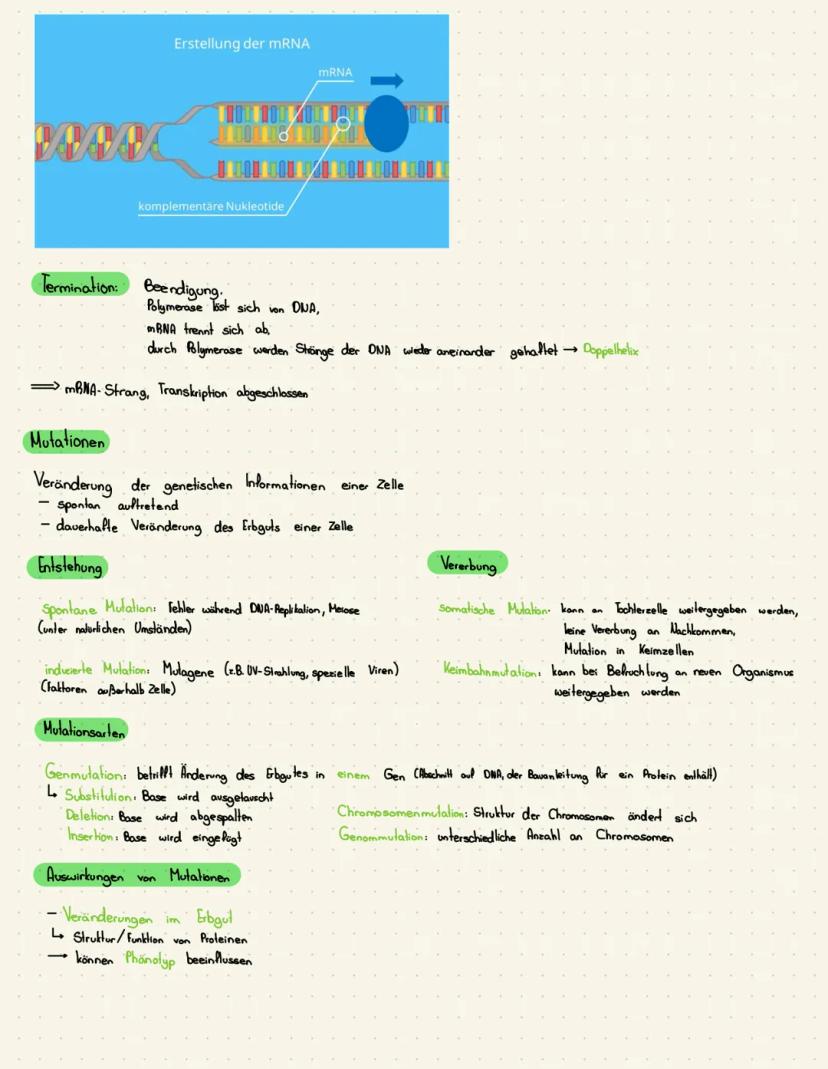 Erstellung der mRNA
mRNA
komplementäre Nukleotide
Termination: Beendigung.
Polymerase löst sich von DNA,
mRNA trennt sich ab,
durch Polymerase werden Stränge der DNA wieder aneinander gehaftet → Doppelhelix
⟹ mRNA-Strang, Transkription abgeschlossen
Mutationen
Veränderung der genetischen Informationen einer Zelle
- spontan auftretend
- dauerhafte Veränderung des Erbguts einer Zelle
Entstehung
spontane Mutation: Fehler während DNA-Replikation, Meiose
(unter natürlichen Umständen)
induzierte Mutation: Mutagene (z.B. UV-Strahlung, spezielle Viren)
(Faktoren außerhalb Zelle)
Vererbung
somatische Mutation: kann an Tochterzelle weitergegeben werden,
keine Vererbung an Nachkommen,
Mutation in Keimzellen
Keimbahnmutation: kann bei Befruchtung an neuen Organismus
weitergegeben werden
Mutationsarten
Genmutation: betrifft Änderung des Erbgutes in einem Gen (Abschnitt auf DNA, der Bauanleitung für ein Protein enthält)
↳ Substitution: Base wird ausgetauscht
Deletion: Base wird abgespalten
Insertion: Base wird eingefügt
Chromosomenmutation: Struktur der Chromosomen ändert sich
Genommutation: unterschiedliche Anzahl an Chromosomen
Auswirkungen von Mutationen
- Veränderungen im Erbgut
↳ Struktur/Funktion von Proteinen
→ können Phänotyp beeinflussen